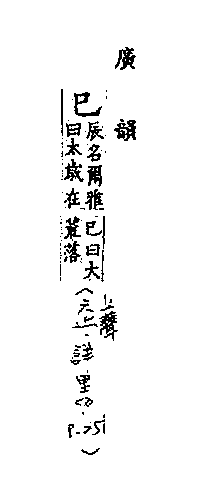 廣韻
巳
辰名爾雅
曰太歲在
巳曰大
荒落
上聲
(六止、詳里切. P.251)